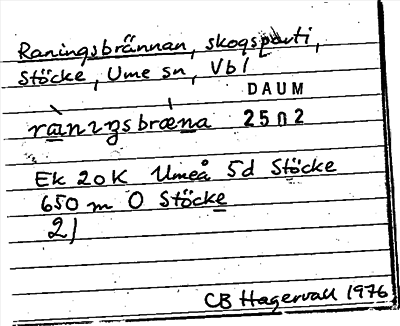 Raningsbrännan, skogsparti,
Stöcke, Ume sn, Vbl
DAUM
rànıŋsbræ̀na 2502
Ek 20K Umeå 5d Stöcke
650 m O Stöcke
21
CB Hagervall 1976